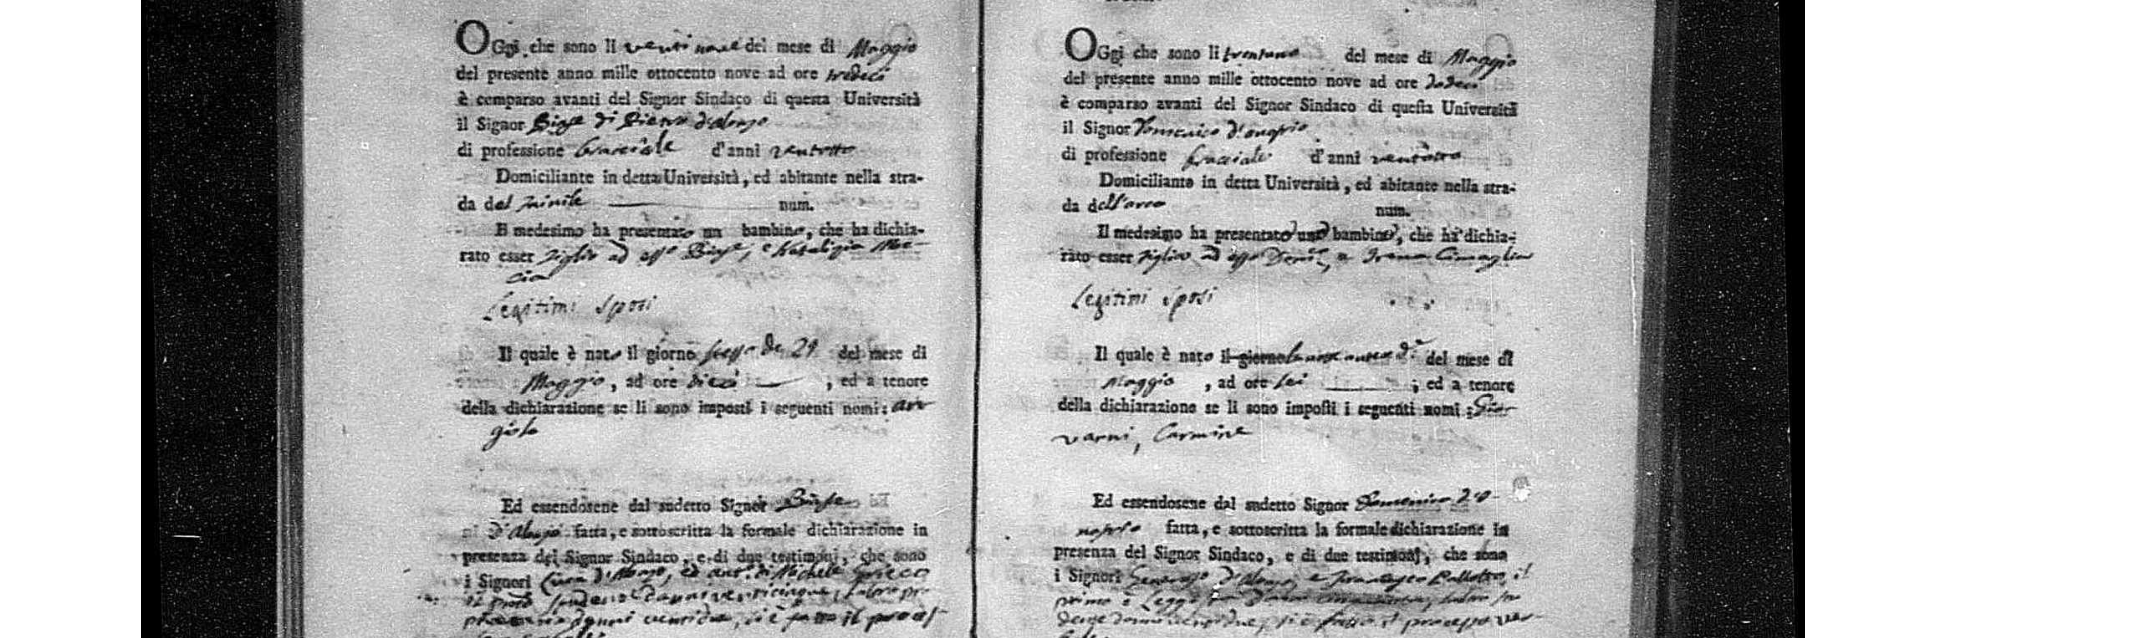 OGgi che sono li venti nove del mese di Maggio
del presente anno mille ottocento nove ad ore tredeci
è comparso avanti del Signor Sindaco di questa Università
il Signor Biase di Pietro d'Aloiso
di professione bracciale d'anni ventotto
Domiciliante in detta Università, ed abitante nella stra-
da del num.
Il medesimo ha presentato un bambino, che ha dichia-
rato esser figlio ad esso Biase, e
Legitimi Sposi
Il quale è nato il giorno stesso de 29 del mese di
Maggio, ad ore dieci, ed a tenore
della dichiarazione se li sono imposti i seguenti nomi: an
giolo
Ed essendosene dal sudetto Signor Biase
d'Aloiso fatta, e sottoscritta la formale dichiarazione in
presenza del Signor Sindaco, e di due testimonj, che sono
i Signori d'Aloiso, ed ant.º di Michele Grieco
venticinque,
d'anni ventidue, si è fatto il proces
OGgi che sono li trentuno del mese di Maggio
del presente anno mille ottocento nove ad ore dodeci
è comparso avanti del Signor Sindaco di questa Università
il Signor Domenico d'onofrio
di professione bracciale d'anni ventotto
Domiciliante in detta Università, ed abitante nella stra-
da dell'arco num.
Il medesimo ha presentato uno bambino, che ha dichia-
rato esser figlio ad esso Dom.co, e Irena Cimaglia
Legitimi Sposi
Il quale è nato il giorno del mese di
Maggio, ad ore sei; ed a tenore
della dichiarazione se li sono imposti i seguenti nomi: Gio
vanni, Carmine
Ed essendosene dal sudetto Signor Domenico d'o-
nofrio fatta, e sottoscritta la formale dichiarazione in
presenza del Signor Sindaco, e di due testimonj, che sono
i Signori Generoso d'Aloiso, e Francesco Pallotto, il
primo è
d'anni ventidue, si è fatto il processo ver-